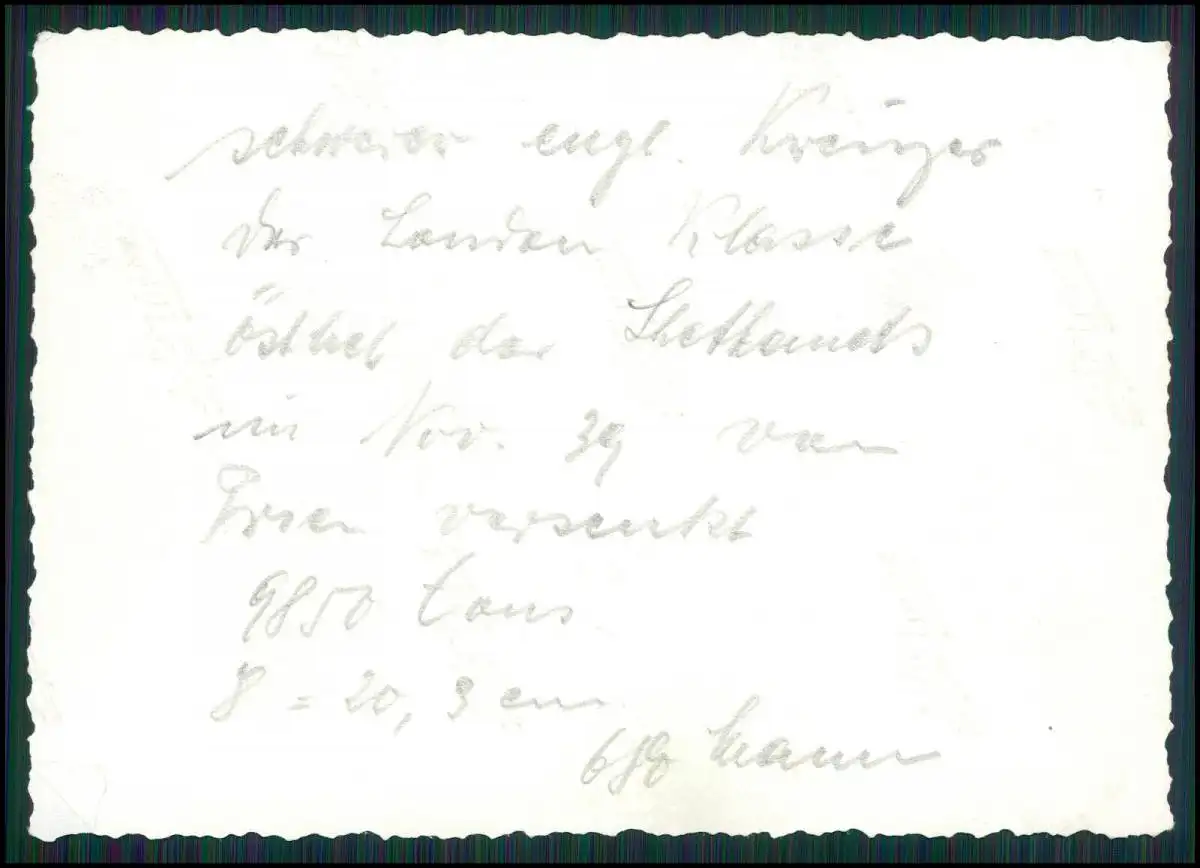 schwerer engl. Kreuzer
der London Klasse
östlich der Shetlands
im Nov. 39 von
Prien versenkt
9850 tons
8 = 20,3 cm
Mann